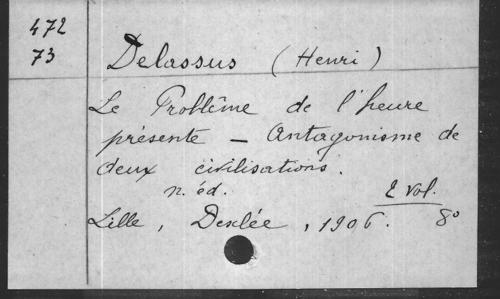 472
73
Delassus (Henri)
Le Problême de l'heure
présente – Antagonisme de
deux civilisations.
n. éd. 2 vol.
Lille, Desclée, 1906. 8°